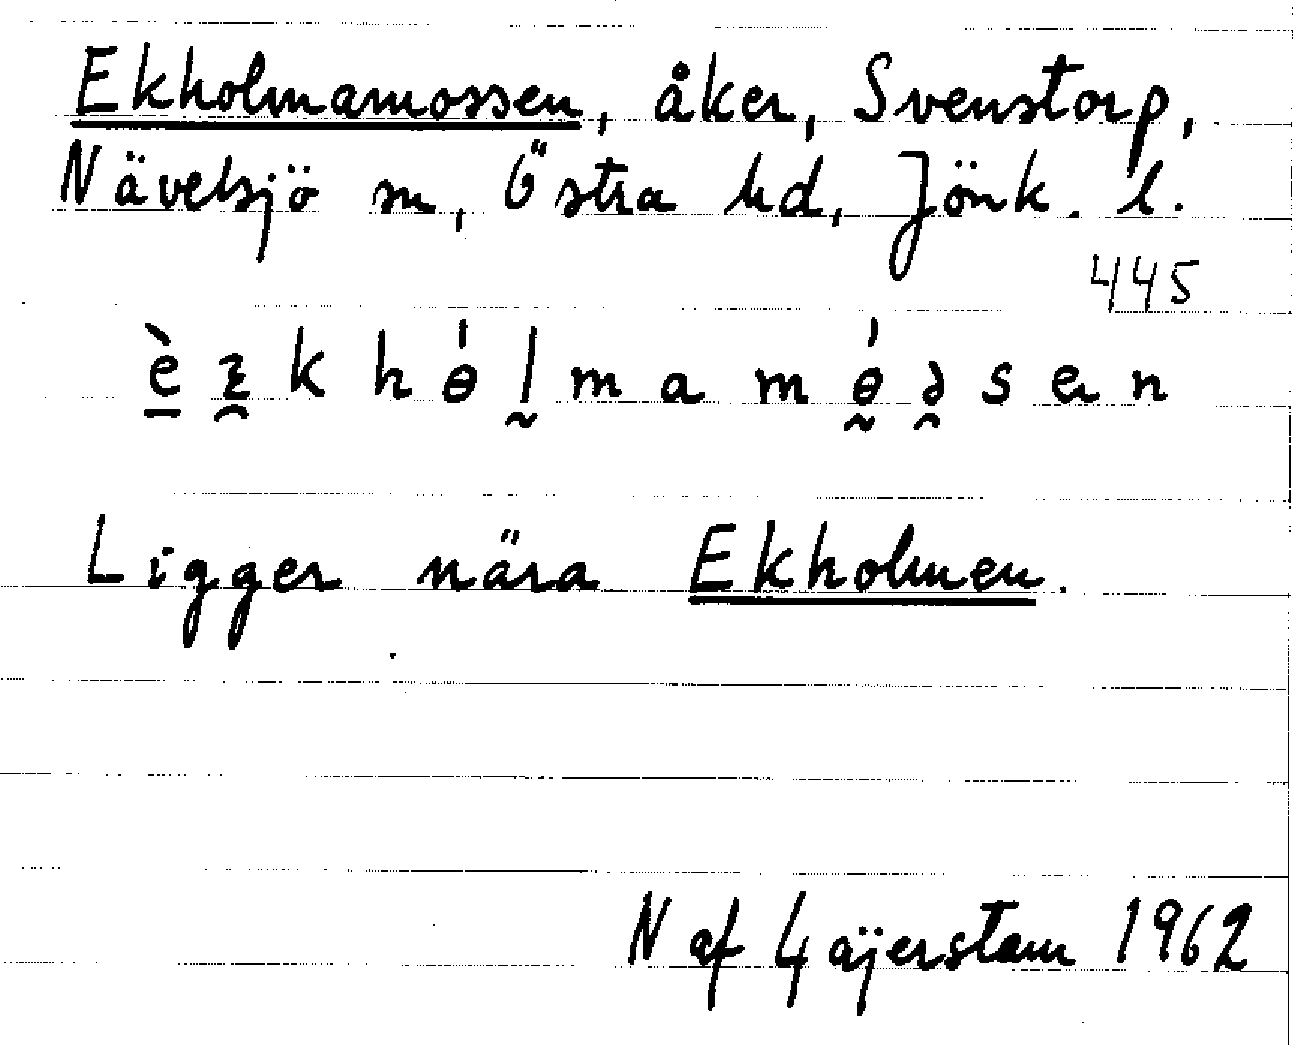 Ekholmamossen, åker, Svenstorp,
Nävelsjö sn, Östra hd, Jönk. l.
445
Ligger nära Ekholmen.
N af Gäijerstam 1962